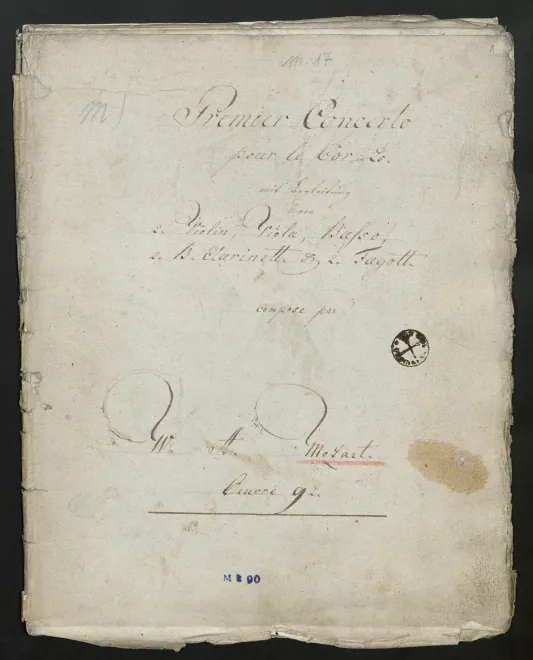 m. 17
m
Premier Concerto
pour le Cor.
mit Begleitung
2. Violin, Viola, Basso,
2. B. Clarinett. & 2. Fagott.
compose par
W. A. Mozart.
Œuvre 92.
M B 90